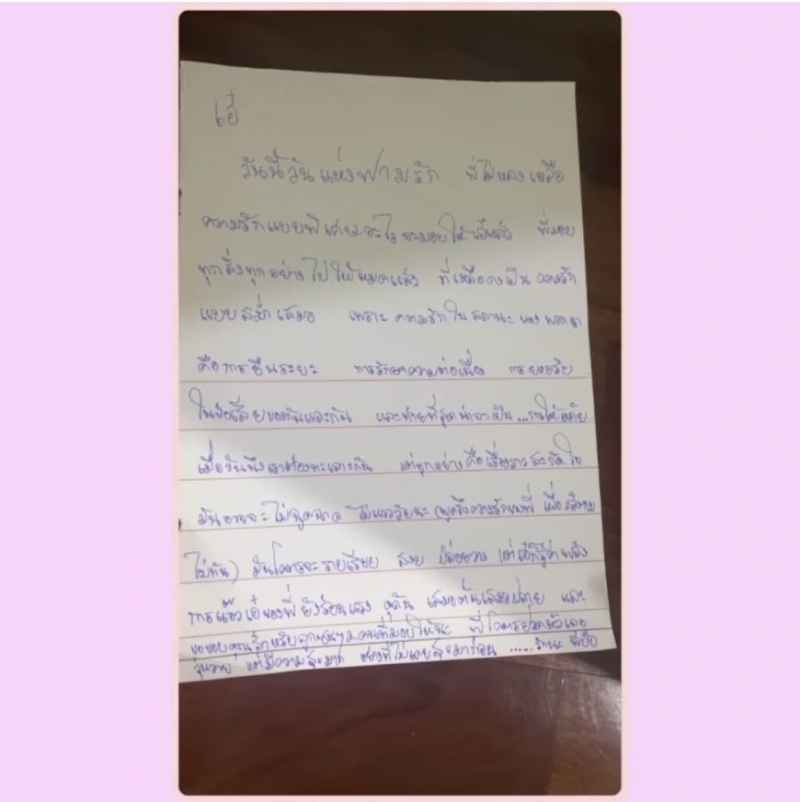 เอ๋
วันนี้วันแห่งความรัก พี่ไม่หลงเหลือ
ความรักแบบพิเศษอะไรจะมอบให้เอ๋แล้ว พี่มอบ
ทุกสิ่งทุกอย่างไปให้หมดแล้ว ที่เหลือคงเป็นความรัก
แบบสม่ำเสมอ เพราะความรักในสถานะของพวกเรา
คือการยืนระยะ การรักษาความต่อเนื่อง การยอมรับ
ในข้อเสียของกันและกัน และท้ายที่สุดน่าจะเป็น...การให้อภัย
เมื่อวันนึงเราต้องทะเลาะกัน แต่ทุกอย่างคือเรื่องราวสะกิดใจ
มันอาจจะไม่ฉูดฉาด ไม่แพรวพราวนะ (พูดถึงความรักของพี่ เผื่อเอ๋ตาม
ไม่ทัน) มันโคตรจะราบเรียบ สงบ ปล่อยวาง แต่เอ๋ก็รู้ว่าพลัง
การแอ๊วเอ๋ของพี่ยังร้อนแรง ดุดัน เสมอต้นเสมอปลาย และ
ขอบคุณรักหรับลูกๆ คนที่มอบให้นะ พี่โคตร
วุ่นวาย แต่มีความสุขมาก อย่างที่ไม่เคยสุขมาก่อน ..... รักนะ